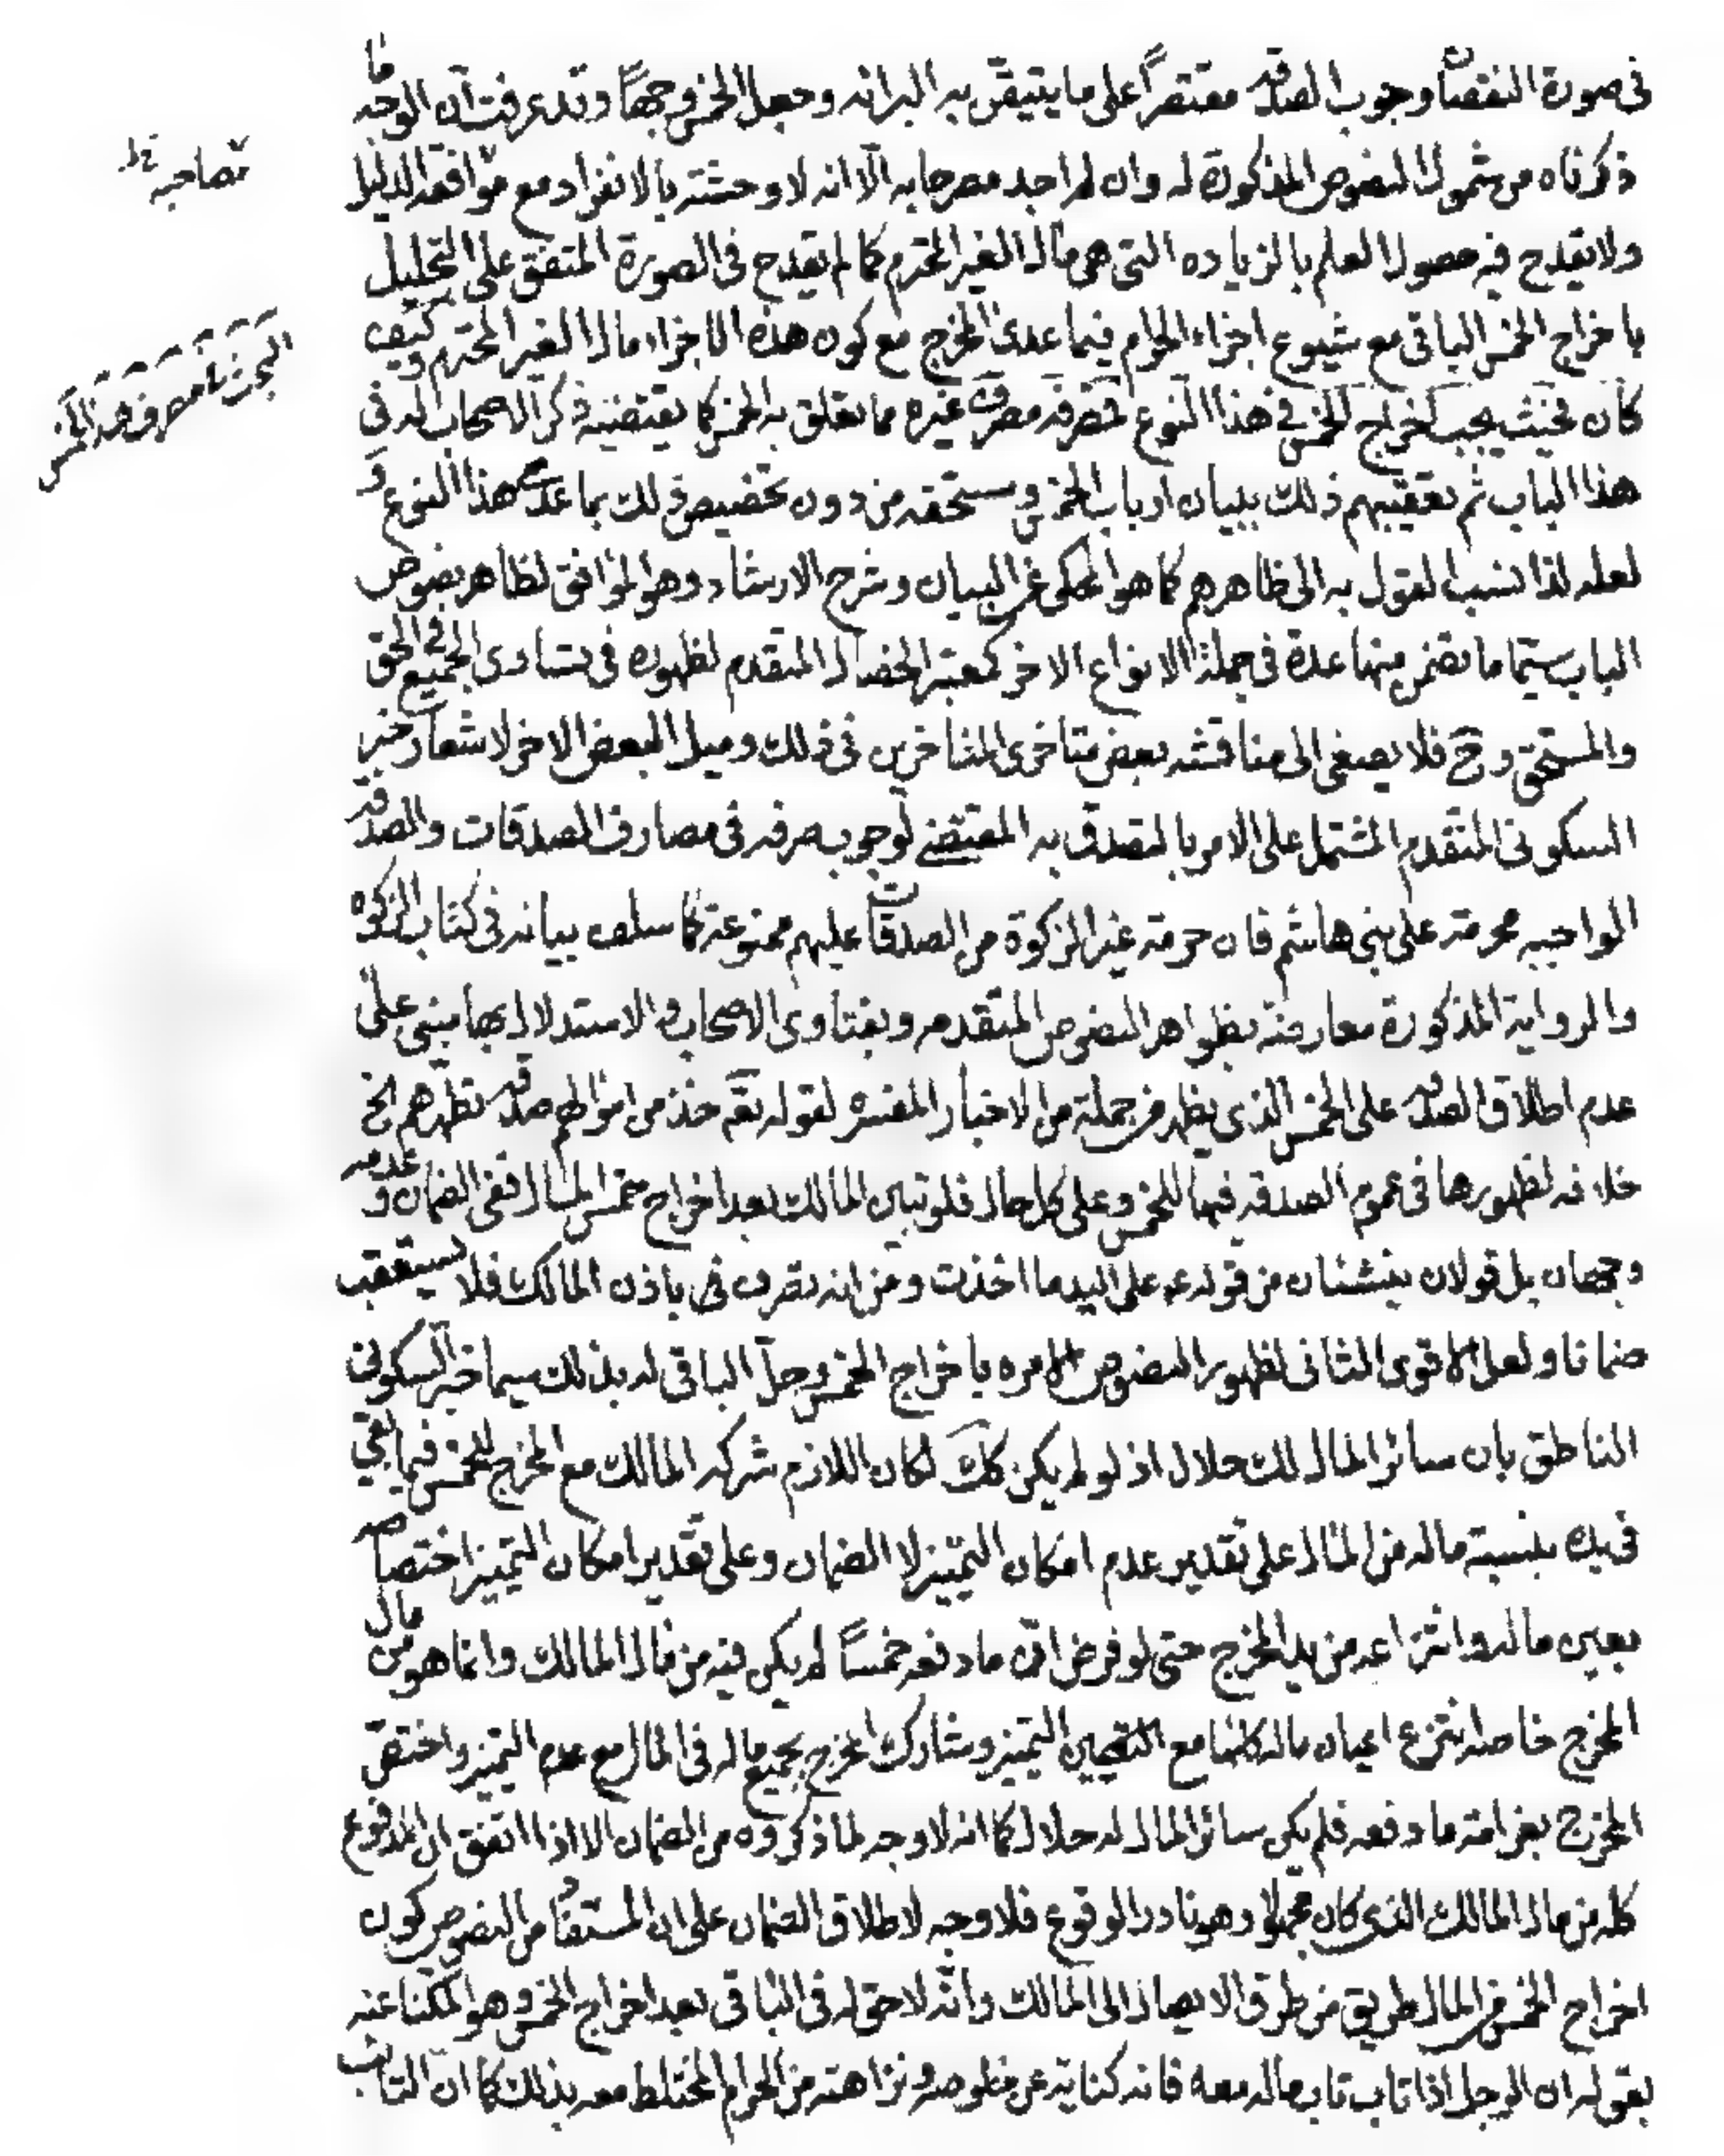 فى صورة النقصان وجوب الصدقه مقتصراً على ما يتيقن به البرائه وجعل الخمس وجهاً وقد عرفت ان الوجه ما
ذكرناه من شمول النصوص المذكورة له وان لم اجد مصرحا به الّا انه لا وحشته بالانفراد مع موافقه الدليل
تصاحبه خ‍ل
ولا يقدح فيه حصول العلم بالزياده التى هى مال الغير المحترم كما لم يقدح فى الصورة المتفق على التحليل
باخراج الخمس الباقى مع شيوع اجزاء الحرام فيما عدى المخرج مع كون هذه الاجزاء مال الغير المحترم وكيف
البحث فى مصرف هذا الخمس
كان فحيث يجب اخراج الخمس فى هذا النوع فمصرفه مصرف غيره مما تعلق به الخمس كما يقتضيه ذكر الاصحاب له فى
هذا الباب ثم تعقيبهم ذلك ببيان ارباب الخمس ومستحقه من دون تخصيص ذلك بما عدى هذا النوع و
لعله لذا نسب القول به الى ظاهرهم كما هو المحكى عن البيان وشرح الارشاد وهو الموافق لظاهر نصوص
الباب سيّما ما تضمن منها عدة فى جملة الانواع الاخر كمعتبر الخصال المتقدم لظهوره فى تساوى الجميع فى الحق
والمستحق وح فلا يصغى الى مناقشه بعض متاخرى المتاخرين فى ذلك وميل البعض الاخر لاشعار خبر
السكونى المتقدم المشتمل على الامر بالتصدق به المقتضى لوجوب صرفه فى مصارف الصدقات والصدقه
الواجبه محرمته على بنى هاشم فان حرمته غير الزكوة من الصدقات عليهم ممنوعة كما سلف بيانه فى كتاب الزكوة
والرواية المذكورة معارضة بظواهر النصوص المتقدمه وبفتاوى الاصحاب والاستدلال بها مبنى على
عدم اطلاق الصدقه على الخمس الذى يظهر من جملة من الاخبار المفسره لقوله تعَ خذ من اموالهم صدقه تطهرهم الخ
خلافه لظهورها فى عموم الصدقه فيها للخمس وعلى كل حال فلو تبين المالك بعد اخراج خمس المال ففى الضمان وعدمه
وجهان بل قولان ينشئان من قوله ع على اليد ما اخذت ومن انه تصرف فيه باذن المالك فلا يستعقب
ضمانا ولعل الاقوى الثانى لظهور النصوص الامره باخراج الخمس وحلّ الباقى له بذلك سيما خبر السكونى
الناطق بان سائر المال لك حلال اذ لو لم يكن كك لكان اللازم شركه المالك مع المخرج للخمس فيما بقى
فى يده بنسبة ماله من المال على تقدير عدم امكان التميّز لا الضمان وعلى تقدير امكان التميز اختصاصه
بعين ماله وانتزاعه من يد المخرج حتى لو فرض انّ ما دفعه خمساً لم يكن فيه من مال المالك وانما هو من مال
المخرج خاصه انتزع اعيان ماله كلها مع التميز وشارك المخرج بجميع ماله فى المال مع عدم التميز واختص
المخرج بغرامته ما دفعه فلم يكن سائر المال له حلال كما انه لا وجه لما ذكروه من الضمان الا اذا اتفق ان المدفوع
كله من مال المالك الذى كان مجهولا وهو نادر الوقوع فلا وجه لاطلاق الضمان على ان المستفاد من النصوص كون
اخراج الخمس من المال طريق من طرق الايصال الى المالك وانّه لا حق له فى الباقى بعد اخراج الخمس وهو المكنا عنه
بقوله ان الرجل اذا تاب تاب ماله معه فانه كناية عن خلوصه ونزاهته من الحرام المختلط معه بذلك كما ان التائب